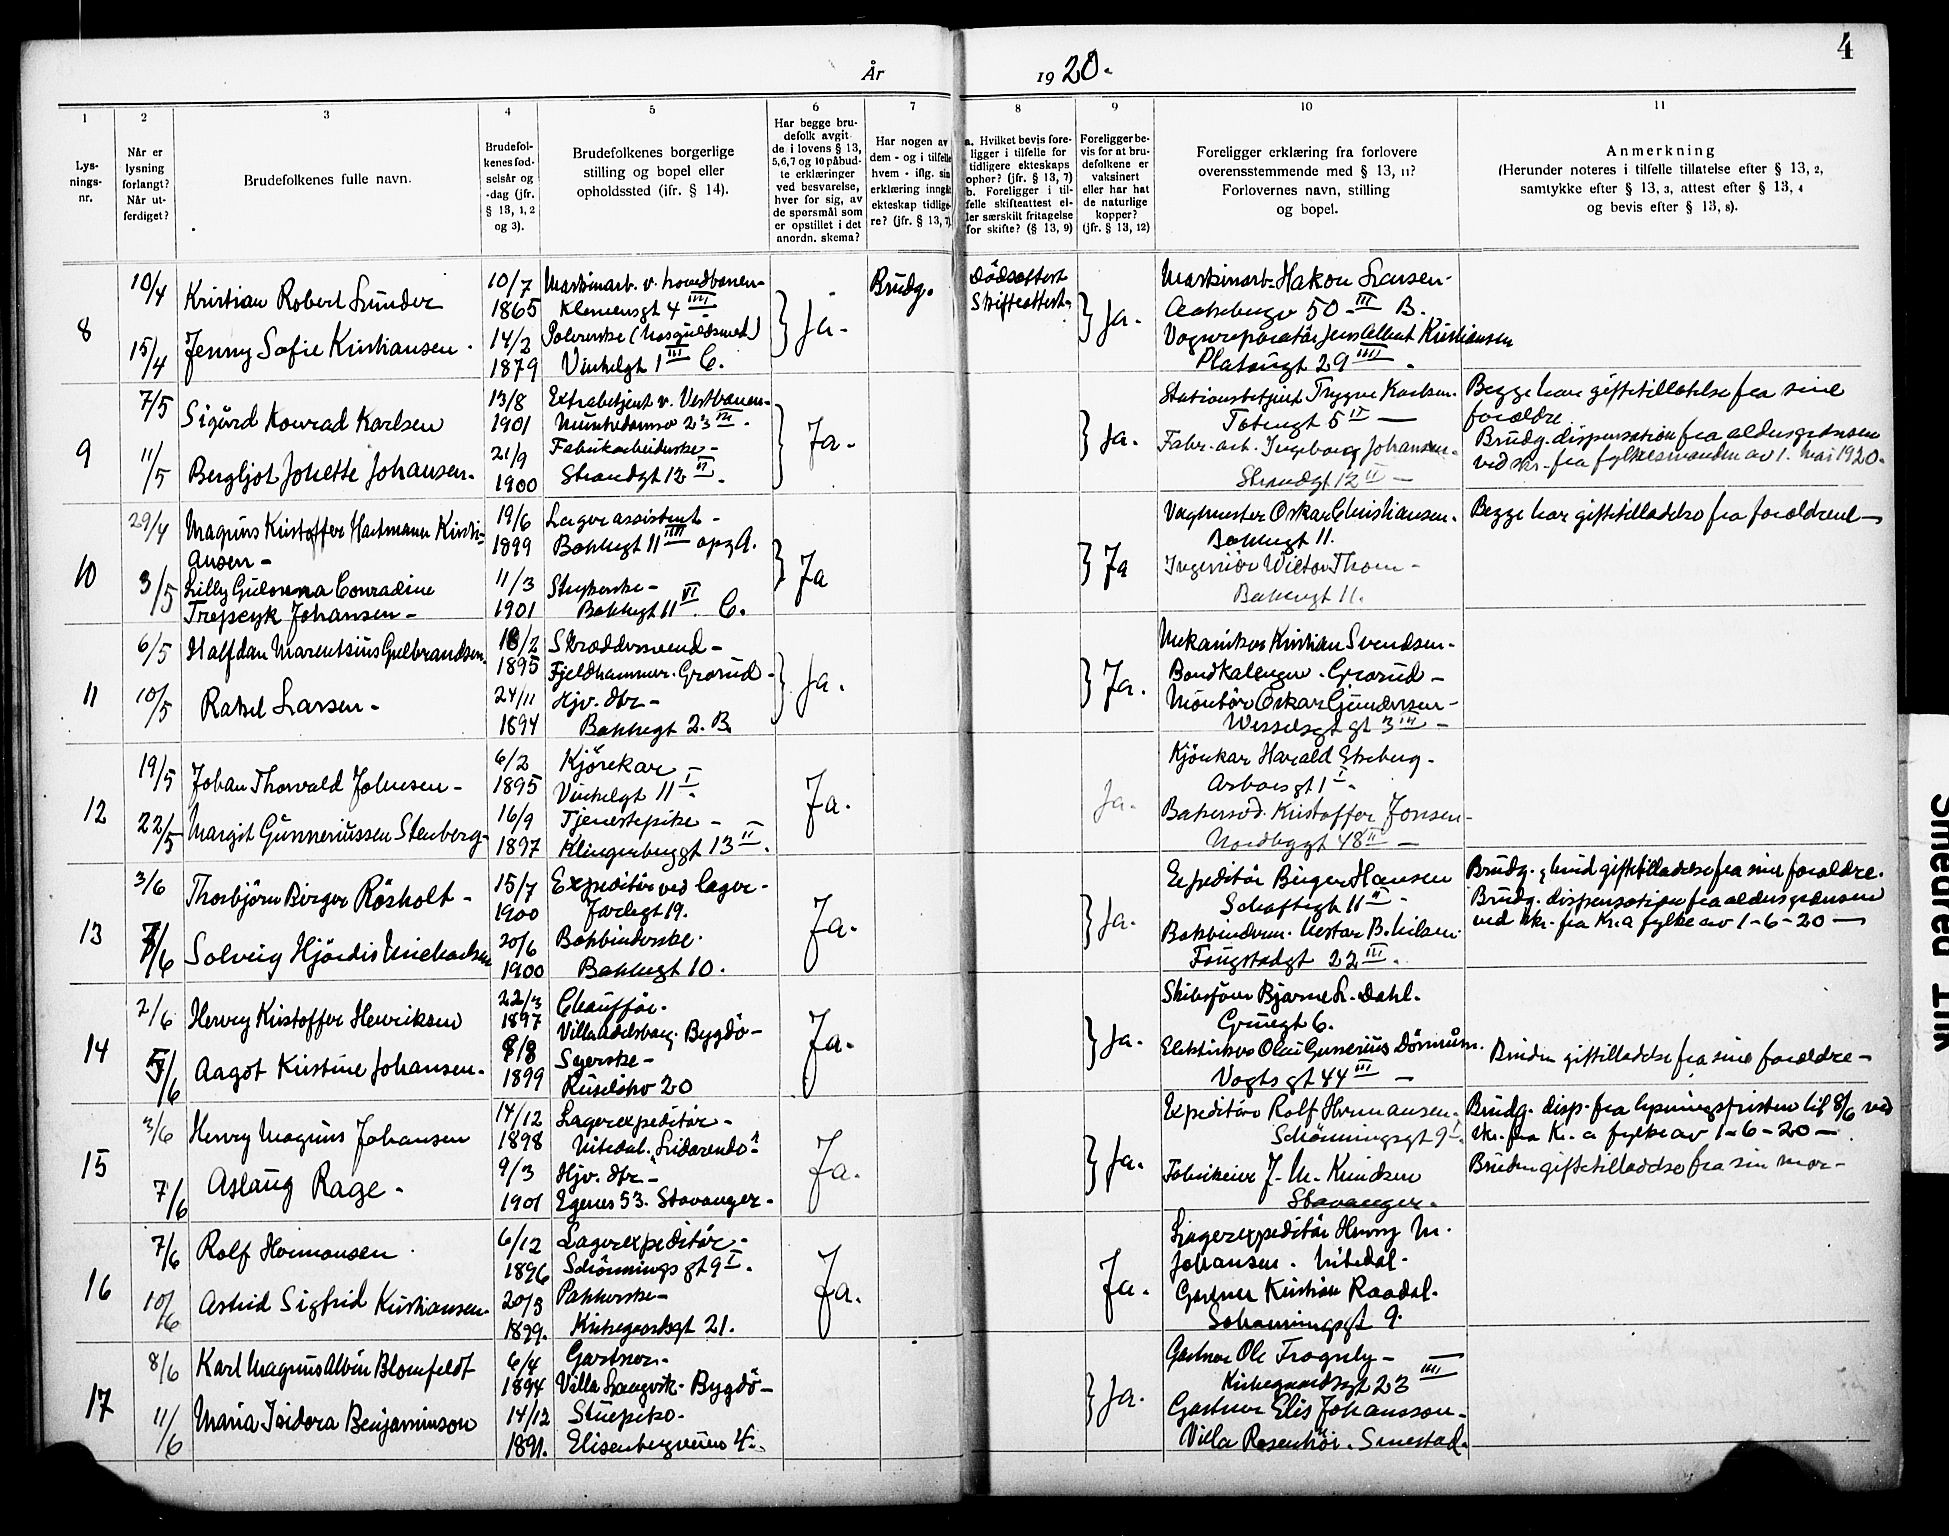 År 1920.
4
1
2
3
4
5
6
7
8
9
10
11
Lys-
nings-
nr.
Når er
lysning
forlangt?
Når ut-
ferdiget?
Brudefolkenes fulle navn.
Brudefol-
kenes fød-
selsår og
-dag (jfr.
§ 13, 1, 2
og 3).
Brudefolkenes borgerlige
stilling og bopel eller
opholdssted (jfr. § 14).
Har begge bru-
defolk avgit
de i lovens § 13,
5,6,7 og 10 påbud-
te erklæringer
ved besvarelse,
hver for sig, av
de spørsmål som
er opstillet i det
anordn. skema?
Har nogen av
dem - og i tilfelle
hvem - iflg. sin
erklæring inngåt
ekteskap tidlige-
re? (jfr. § 13, 7)
a. Hvilket bevis fore-
ligger i tilfelle for
tidligere ekteskaps
ophør? (jfr. § 13, 7)
b. Foreligger i til-
felle skifteattest el-
ler særskilt fritagelse
for skifte? (§ 13, 9)
Foreligger be-
vis for at bru-
defolkene er
vaksinert
eller har hat
de naturlige
kopper?
(jfr. § 13, 12)
Foreligger erklæring fra forlovere
overensstemmende med § 13, 11?
Forlovernes navn, stilling
og bopel.
Anmerkning
(Herunder noteres i tilfelle tillatelse efter § 13, 2,
samtykke efter § 13, 3, attest efter § 13, 4
og bevis efter § 13, 8).
8
10/4
15/4
Kristian Robert Lunder
Jenny Sofie Kristiansen.
10/7
1865
14/2
1879
Maskinarb. v. hovedbanen-
Klemensgt 4 IIII
Polererske
Vinkelgt 1 III C.
Ja.
Brudg.
Dödsattest
Skifteattest.
Ja.
Maskinarb. Hakon Larsen-
Akebergv 50 III B.
Vognreparatör Jens Albert Kristiansen
Platougt 29 IIII
9
7/5
11/5
Sigurd Konrad Karlsen
Bergljot Johette Johansen.
13/8
1901
21/9
1900
Extrabetjent v. Vestbanen-
Munkedamsv 23 III.
Fabrikarbeiderske-
Strandgt 12 II.
Ja.
Ja.
Stationsbetjent Trygve Karlsen.
Totengt 5 II
Fabr. arb. Ingeborg Johansen-
Strandgt 12 II
Begge har giftetillatelse fra sine
forældre
Brudg. dispensation fra aldersgrænsen
ved skr. fra fylkesmanden av 1. Mai 1920.
10
29/4
3/5
Magnus Kristoffer Hartmann Kristi-
ansen-
Lilly Gulonna Conradine
Trepscyk Johansen-
19/6
1899
11/3
1901
Lagerassistent-
Bakkegt 11 IIII opg A.
Strykerske-
Bakkegt 11 VI C.
Ja
Ja
Vagtmester Oskar Christiansen.
Bakkegt 11.
Ingeniör Victor Thom-
Bakkegt 11.
Begge har giftetilladelse fra forældrene
11
6/5
10/5
Halfdan Marentsius Gulbrandsen.
Rakel Larsen-
18/2
1895
24/11
1894
Skræddersvend-
Fjeldhammer. Grorud-
Hjv. dtr-
Bakkegt 2. B.
Ja.
Ja.
Mekaniker Kristian Svendsen-
Bondkalengen. Grorud-
Montör Oskar Gundersen-
Wesselsgt 3 III
12
19/5
22/5
Johan Thorvald Johnsen-
Margit Gunneriussen Stenberg-
6/2
1895
16/9
1897
Kjörekar
Vinkelgt 11 I.
Tjenestepike-
Klingenberggt 13 II.
Ja.
Ja.
Kjörekar Harald Streberg.
Arbosgt 1 I.
Bakersvd. Kristoffer Jonsen-
Nordbygt 48 II
13
3/6
7/6
Thorbjörn Birger Rösholt-
Solveig Hjördis Michaelsen
15/7
1900
20/6
1900
Expeditör ved lager-
Jarlegt 19.
Bokbinderske.
Bakkegt 10.
Ja.
Ja.
Expeditör Birger Hansen
Schaftegt 11 II
Bokbinderm. Nestor B. Nilsen
Fougstadgt 22 III.
Brudg. & brud giftetilladelse fra sine forældre.
Brudg. dispensation fra aldersgrænsen
ved skr. fra Kr.a fylke av 1-6-20
14
2/6
5/6
Henry Kristoffer Henriksen
Aagot Kristine Johansen-
22/3
1897
8/8
1899
Chaufför.
Villa Adelsborg. Bygdö-
Syerske-
Ruselökv 20
Ja.
Ja.
Skibsförer Bjarne L. Dahl.
Grünegt 6.
Elektriker Olai Gunerius Dörmüm.
Vogtsgt 44 III
Bruden giftetilladelse fra sine forældre-
15
3/6
7/6
Henry Magnus Johansen
Aslaug Rage-
14/12
1898
9/3
1901
Lagerexpeditör-
Nitedal.
Hjv. dtr.-
Egenes 53. Stavanger-
Ja.
Ja.
Expeditör Rolf Hermansen-
Schönningsgt 9 I.
Fabrikeier J. M. Knudsen
Stavanger.
Brudg. disp. fra lysningsfristen til 8/6 ved
skr. fra Kr.a fylke av 1-6-20-
Bruden giftetilladelse fra sin mor-
16
7/6
10/6
Rolf Hermansen
Astrid Sigfrid Kristiansen.
6/12
1896
20/3
1899.
Lagerexpeditör-
Schönningsgt 9 I.
Pakkerske-
Kirkegaardsgt 21.
Ja.
Ja.
Lagerexpeditör Henry M.
Johansen. Nitedal.
Gartner Kristian Raadal.
Schonningsgt 9.
17
8/6
11/6
Karl Magnus Alvin Blomfeldt
Maria Isidora Benjaminson
6/4
1894
14/12
1891.
Gartner.
Villa Langvik. Bygdö-
Stuepike.
Elisenbergveien 4.
Ja.
Gartner Ole Frogner-
Kirkegaardsgt 23 IIII
Gartner Elis Johansson-
Villa Rosenhöi. Smestad.
Smedrud Trik